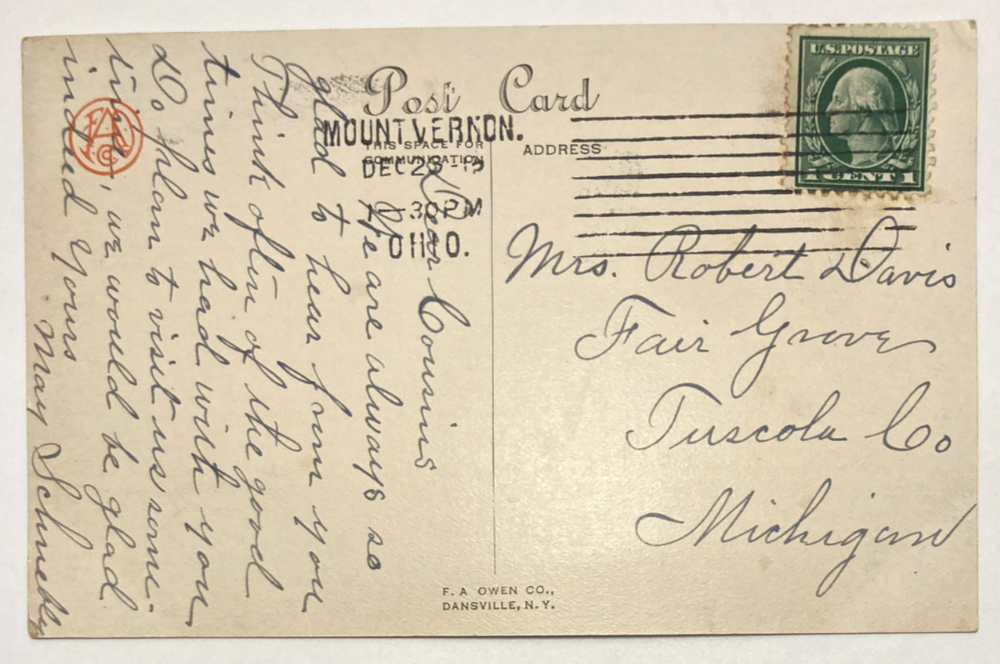 Post Card
THIS SPACE FOR
COMMUNICATION
ADDRESS
MOUNT VERNON.
DEC 23
1-30 PM
OHIO.
U.S. POSTAGE
1 CENT 1
Dear Cousins
We are always so
glad to hear from you
Think often of the good
times we had with you
Do plan to visit us some-
time, we would be glad
indeed Yours
May Schnebly
Mrs. Robert Davis
Fair Grove
Tuscola Co
Michigan
F. A. OWEN CO.,
DANSVILLE, N.Y.